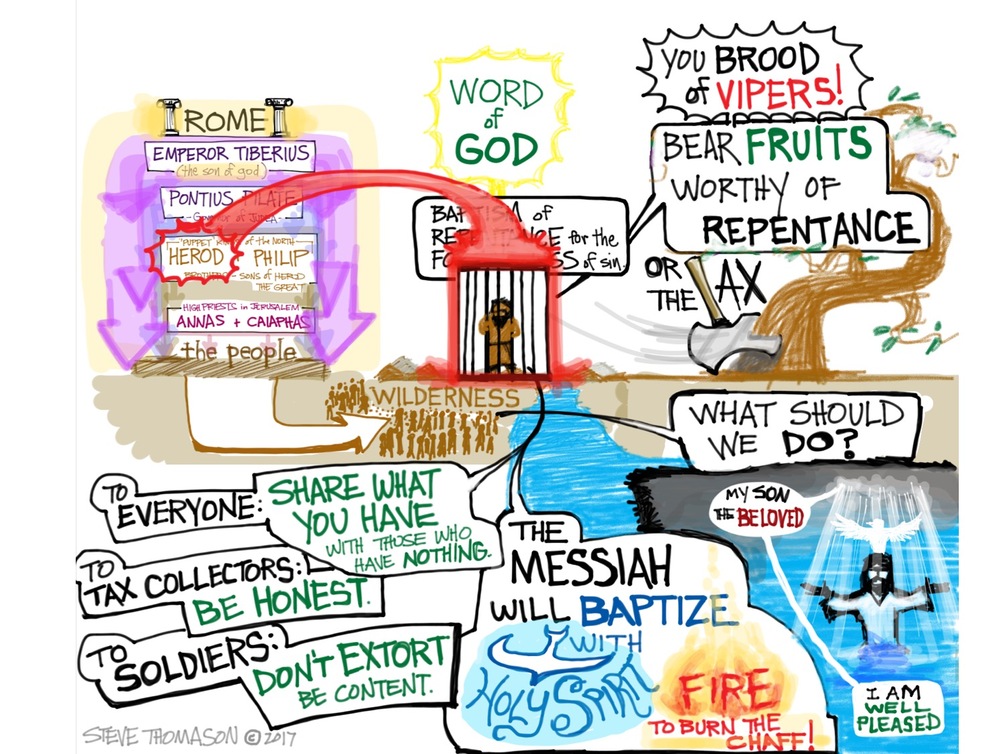 ROME
EMPEROR TIBERIUS
(the son of god)
PONTIUS PILATE
- GOVERNOR of JUDEA -
"PUPPET" KINGS of the NORTH
HEROD PHILIP
BROTHERS - SONS of HEROD
THE GREAT
HIGH PRIESTS in JERUSALEM
ANNAS + CAIAPHAS
the people
WORD
of
GOD
BAPTISM of
REPENTANCE for the
FORGIVENESS of sin
YOU BROOD
of VIPERS!
BEAR FRUITS
WORTHY OF
REPENTANCE
OR
THE AX
WILDERNESS
WHAT SHOULD
WE DO?
TO
EVERYONE:
SHARE WHAT
YOU HAVE
WITH THOSE WHO
HAVE NOTHING.
TO
TAX COLLECTORS:
BE HONEST.
TO
SOLDIERS:
DON'T EXTORT
BE CONTENT.
THE
MESSIAH
WILL BAPTIZE
WITH
HOLY SPIRIT
FIRE
TO BURN THE
CHAFF!
MY SON
THE BELOVED
I AM
WELL
PLEASED
STEVE THOMASON © 2017